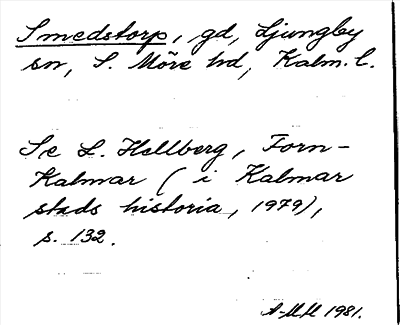 Smedstorp, gd, Ljungby
sn, S. Möre hd, Kalm. l.
Se L. Hellberg, Forn-
Kalmar (i Kalmar
stads historia, 1979),
s. 132.
A-MH 1981.